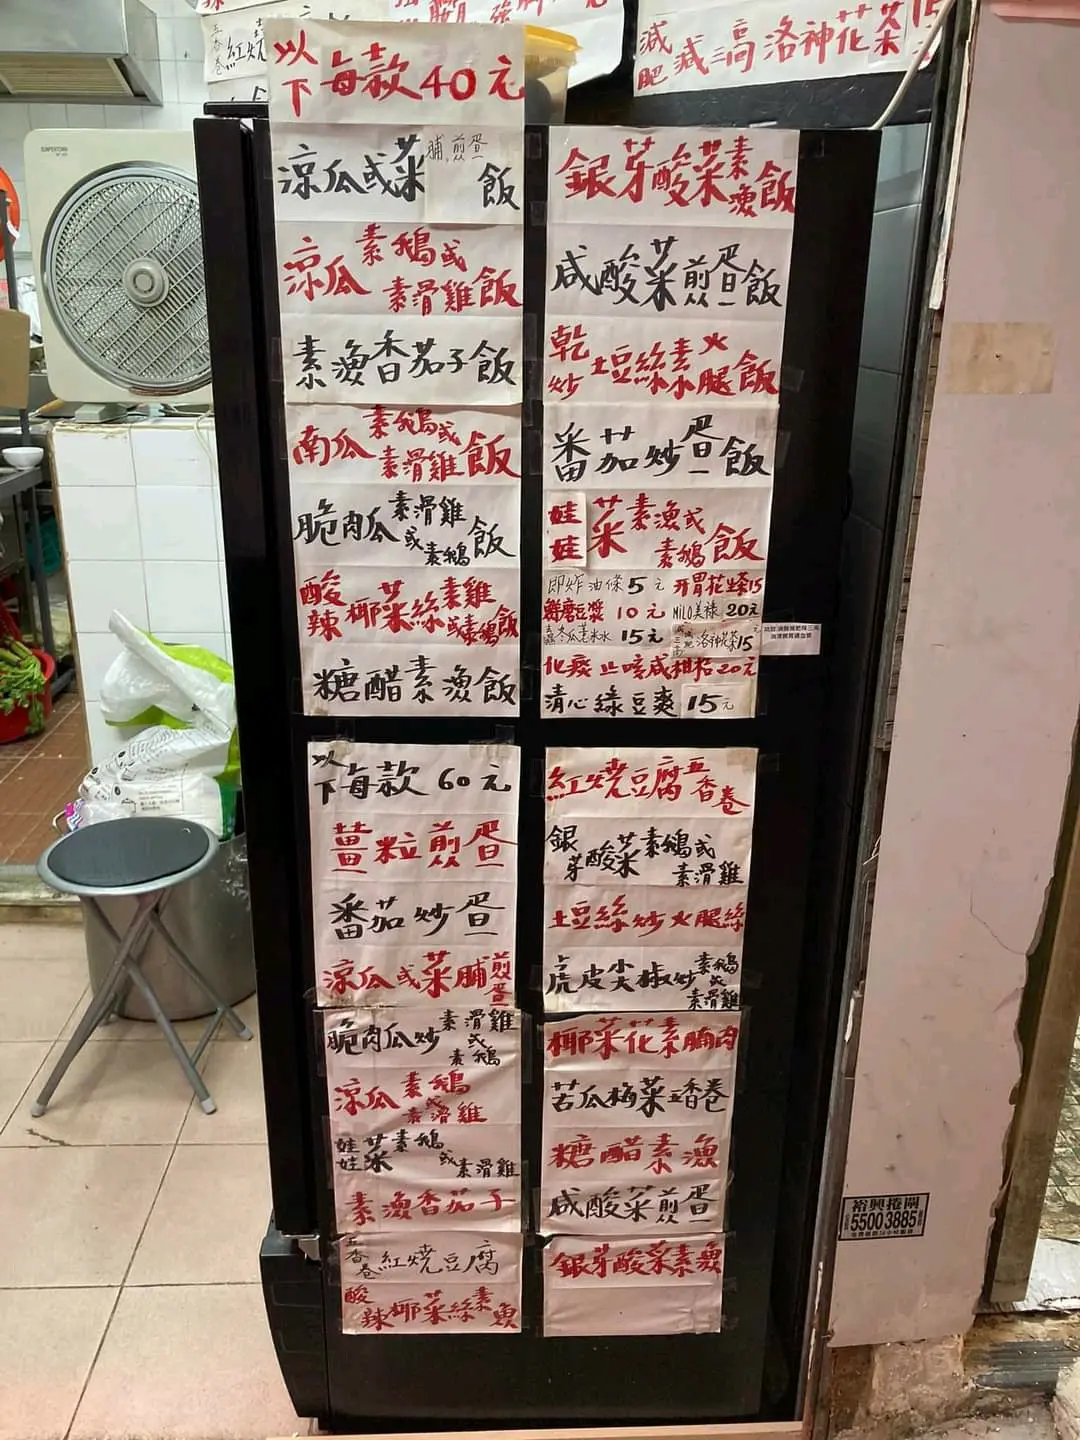 減肥減三高洛神花茶15
紅燒
SUPERTOWN
以下每款40元
涼瓜或菜脯煎蛋飯
涼瓜素鵝或素滑雞飯
素漁香茄子飯
南瓜素鵝或素滑雞飯
脆肉瓜素滑雞或素鵝飯
酸辣椰菜絲素雞或素鵝飯
糖醋素漁飯
銀芽酸菜素漁飯
咸酸菜煎蛋飯
乾炒土豆絲素火腿飯
番茄炒蛋飯
娃娃菜素漁或素鵝飯
即炸油條5元 開胃花生茶15
鮮磨豆漿10元 MILO美祿20元
冬瓜薏米水15元 減肥減三高洛神花茶15元
化痰止咳咸柑桔20元
清心綠豆爽15元
以下每款60元
薑粒煎蛋
番茄炒蛋
涼瓜或菜脯煎蛋
脆肉瓜炒素滑雞或素鵝
涼瓜素鵝或素滑雞
娃娃菜素鵝或素滑雞
素漁香茄子
五香卷紅燒豆腐
酸辣椰菜絲素魚
紅燒豆腐五香卷
銀芽酸菜素鵝或素滑雞
土豆絲炒火腿絲
虎皮尖椒炒素鵝或素滑雞
椰菜花素腩肉
苦瓜梅菜五香卷
糖醋素漁
咸酸菜煎蛋
銀芽酸菜素魚
裕興捲閘
55003885